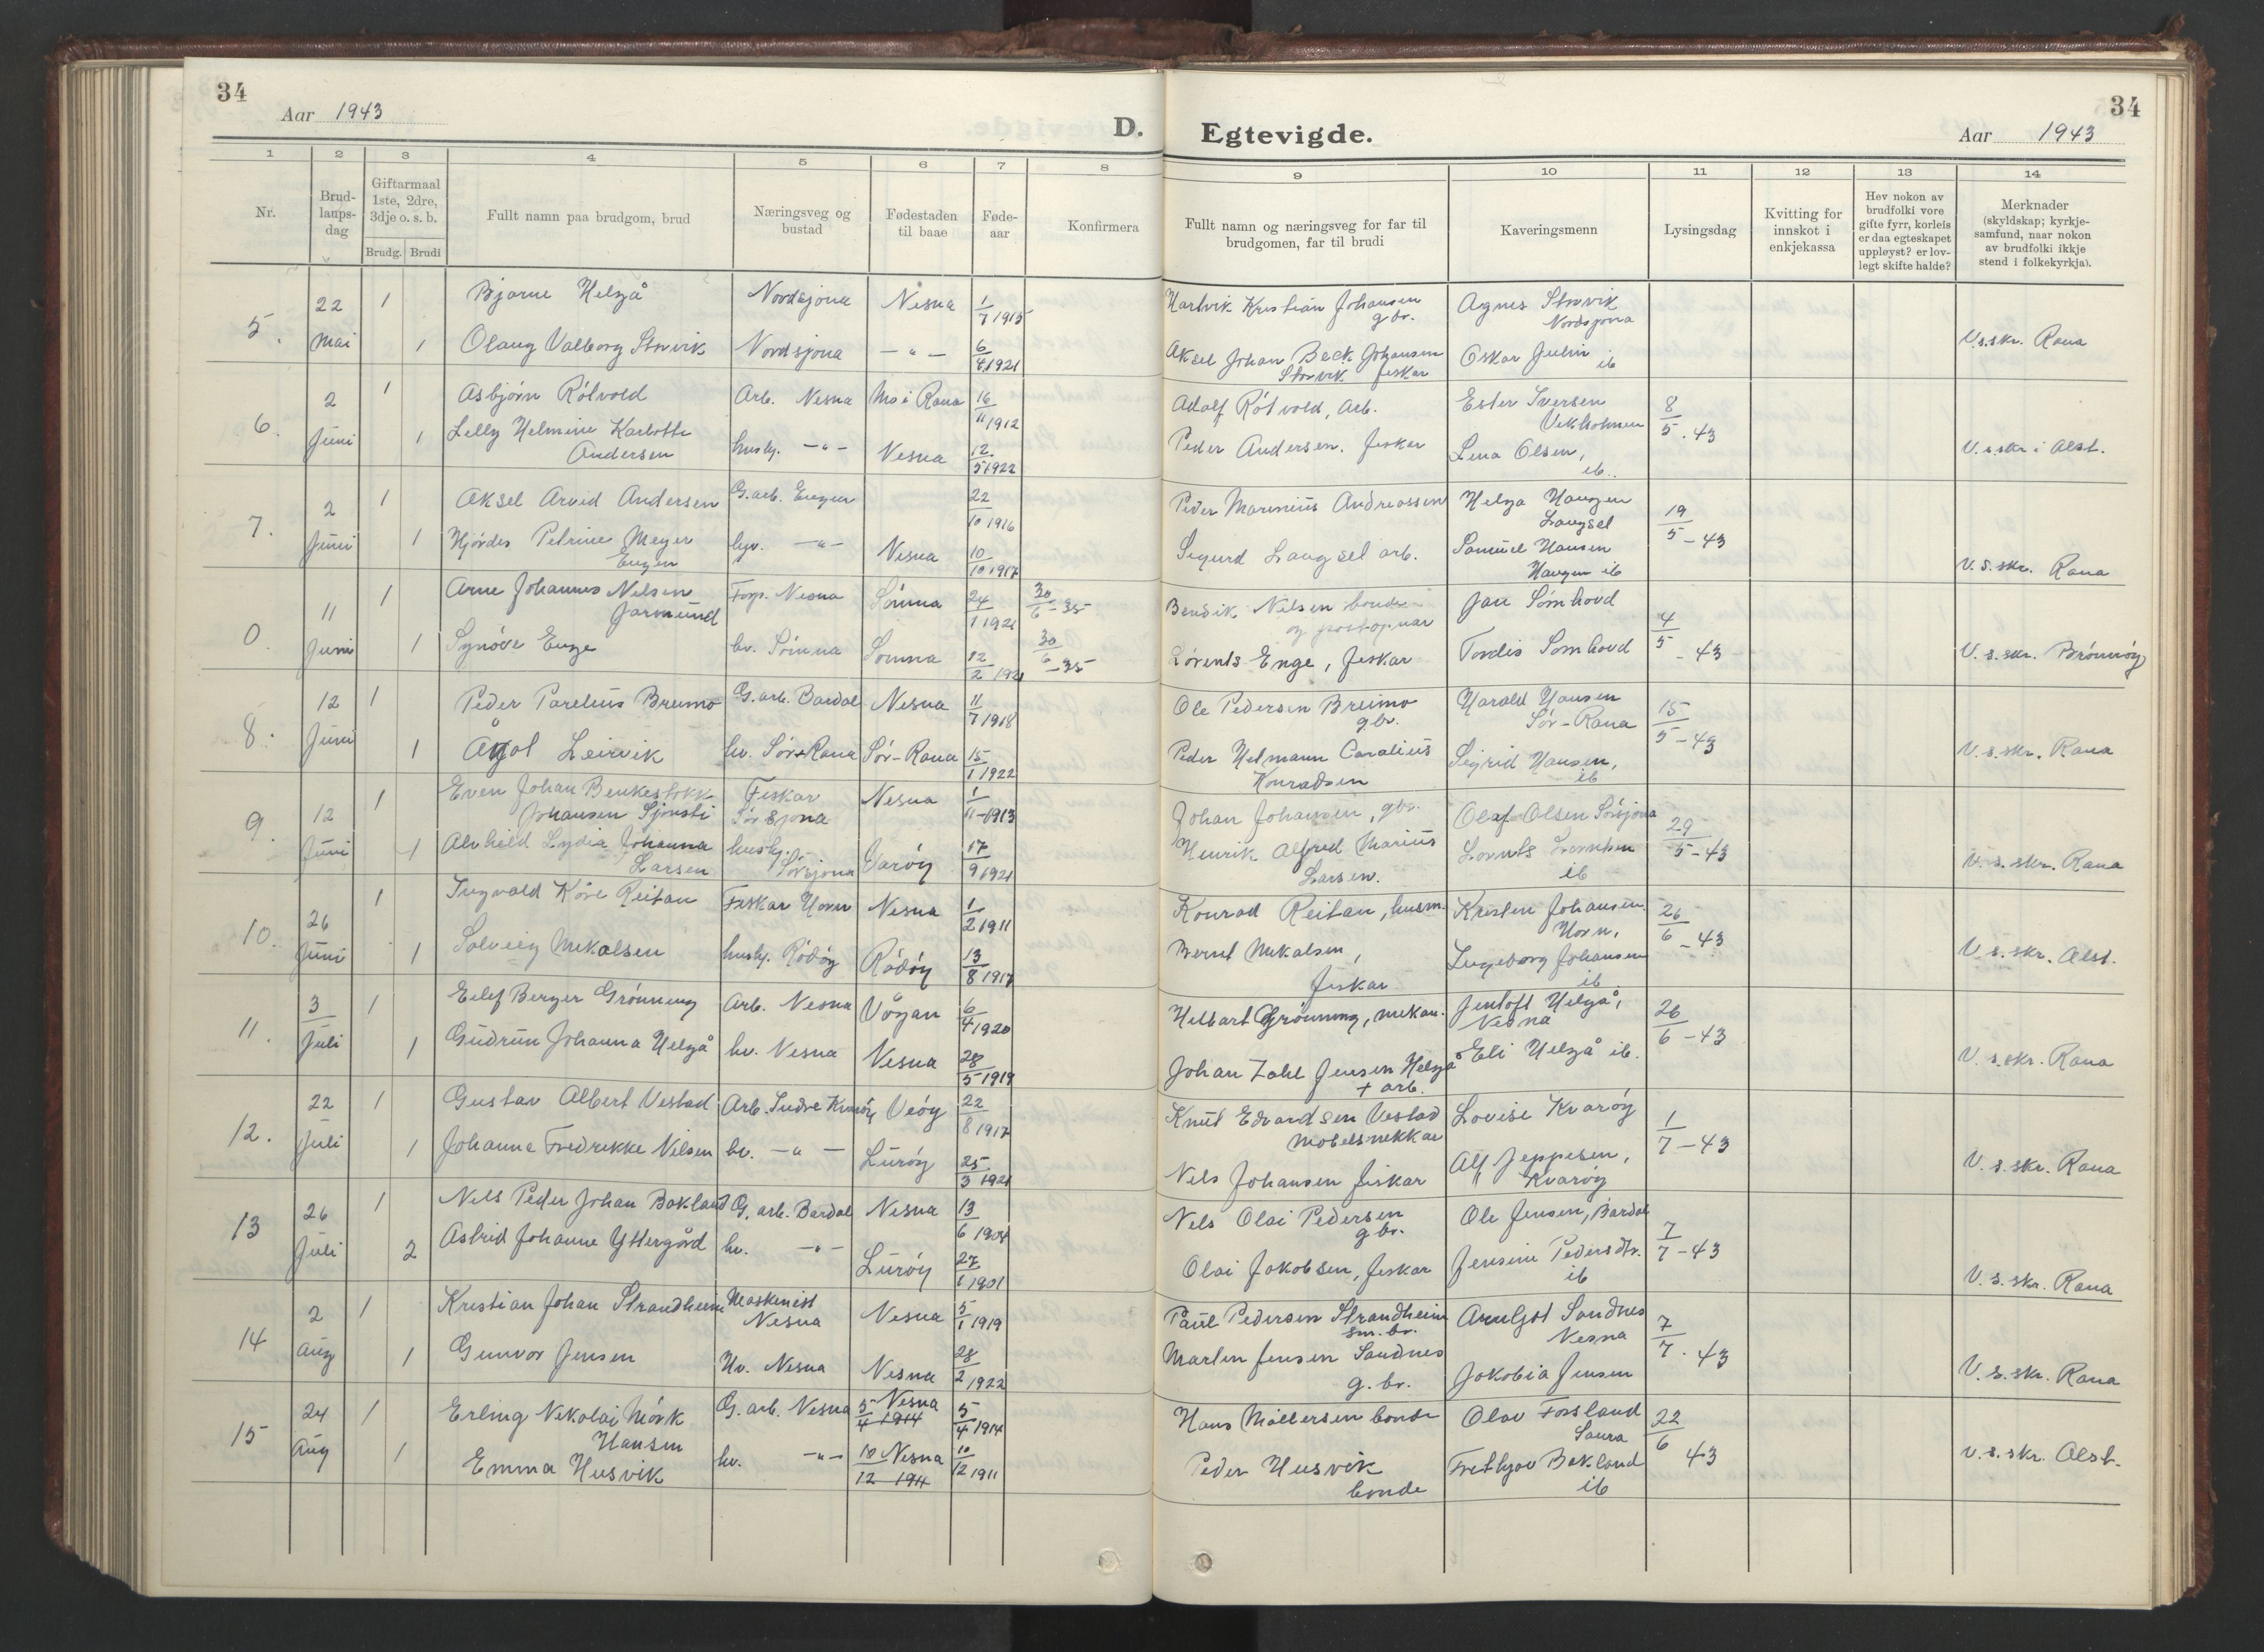 34
Aar 1943
D.
Egtevigde.
34
Aar 1943
1
2
3
4
5
6
7
8
9
10
11
12
13
14
Nr.
Brud-
laups-
dag
Giftarmaal
1ste, 2dre,
3dje o. s. b.
Brudg. Brudi
Fullt namn paa brudgom, brud
Næringsveg og
bustad
Fødestaden
til baae
Føde-
aar
Konfirmera
Fullt namn og næringsveg for far til
brudgomen, far til brudi
Kaveringsmenn
Lysingsdag
Kvitting for
innskot i
enkjekassa
Hev nokon av
brudfolki vore
gifte fyrr, korleis
er daa egteskapet
uppløyst? er lov-
legt skifte halde?
Merknader
(skyldskap; kyrkje-
samfund, naar nokon
av brudfolki ikkje
stend i folkekyrkja).
5. 22 mai
1 Bjarne Helgå Nordsjona Nesna 1/7 1915 Hartvik Kristian Johansen gbr. Agnes Storvik Nordsjona
1 Olaug Valborg Storvik Nordsjona —"— 6/8 1921 Aksel Johan Beck Johansen Storvik fiskar Oskar Julin ib V.s.skr. Rana
6. 2 Juni
1 Asbjørn Røtvold Arb. Nesna Mo i Rana 16/11 1912 Adolf Røtvold, Arb. Ester Iversen 8/5. 43
1 Lelly Helmine Karlotte Andersen husly. —"— Nesna 12/5 1922 Peder Andersen. fiskar Lena Olsen, ib. V.s.skr i Alst.
7. 2 Juni
1 Aksel Arvid Andersen G.arb. Engen 22/10 1916 Peder Marinius Andreassen Helga Haugen Laugsel 19/5 - 43
1 Hjørdis Petrine Meyer Engen —"— Nesna 10/10 1917 Sigurd Laugsel arb. Samuel Hansen Haugen ib V.s.skr. Rana
0. 11 Juni
1 Arne Johannes Nilsen Jarmund Forp. Nesna Sømna 24/1 1921 30/6 - 35 Bendik Nilsen bonde og postopnar Jan Sømhovd 4/5 - 43
1 Synøve Enge hv. Sømna Sømna 12/2 1921 30/6 - 35 Lorents Enge, fiskar Tordis Somhovd V.s.skr. Brønnøy
8. 12 Juni
1 Peder Parelius Breimo G.arb. Bardal Nesna 11/7 1918 Ole Pedersen Breimo gbr. Harald Hansen Sør-Rana 15/5 - 43
1 Leirvik hv. Sør-Rana Sør-Rana 15/1 1922 Peder Helmann Caralius Konradsen Sigrid Hansen, ib V.s.skr. Rana
9. 12 Juni
1 Even Johan Benkestokk Johansen Sjonsti Fiskar Sørsjona Nesna 1/11-1913 Johan Johansen, gbr. Olaf Olsen Sørsjona 29/5 - 43
1 Alvhild Lydia Johanna Larsen husly. Sørsjona Værøy 17/9 1921 Henrik Alfred Marius Larsen. Lorents Lorentsen ib V.s.skr. Rana
10. 26 Juni
1 Ingvald Kåre Reitan Fiskar Horn Nesna 1/2 1911 Konrad Reitan, husm. Kristen Johansen Horn, 26/6 - 43
1 Solveig Mikalsen husly. Rødøy Rødøy 13/8 1917 Bernt Mikalsen, fiskar Ingeborg Johansen ib V.s.skr. Alst.
11. 3 Juli
1 Eilef Berger Grønning Arb. Nesna Vågan 6/4 1920 Helbart Grønning, mekan. Jentoft Helgå, Nesna 26/6 - 43
1 Gudrun Johanna Helgå hv. Nesna Nesna 28/5 1919 Johan Zahl Jensen Helgå + arb. Eli Helgå ib. V.s.skr. Rana
12. 22 Juli
1 Gustav Albert Vestad Arb. Indre Kvarøy Veøy 22/8 1917 Knut Edvardsen Vestad Møbelsnekkar Lovise Kvarøy 1/7 - 43
1 Johanna Fredrikke Nilsen hv. —"— Lurøy 25/3 1921 Nels Johansen fiskar Alf Jeppesen, Kvarøy V.s.skr. Rana
13 26 Juli
1 Nils Peder Johan Bokland G.arb. Bardal Nesna 13/6 1904 Nels Olai Pedersen gbr. Ole Jensen, Bardal 7/7 - 43
2 Astrid Johanne Yttergård hv. —"— Lurøy 27/1 1901 Olai Jakobsen, fiskar Jensine Pedersdtr. ib V.s.skr. Rana
14 2 Aug
1 Kristian Johan Strandheim Maskinist Nesna Nesna 5/1 1919 Paul Pedersen Strandheim sm.br. Arnljot Sandnes Nesna 7/7. 43
1 Gunvor Jensen Hv. Nesna Nesna 28/2 1922 Martin Jensen Sandnes g.br. Jakobia Jensen V.s.skr. Rana
15 24 Aug
1 Erling Nikolai Mørk Hansen G.arb. Nesna 5/4 1914 Nesna 5/4 1914 Hans Møllersen bonde Olav Forsland Saura 22/6 43
1 Emma Husvik hv. —"— 10/12 1911 Nesna 10/12 1911 Peder Husvik bonde Frithjov Bokland ib V.s.skr. Alst.